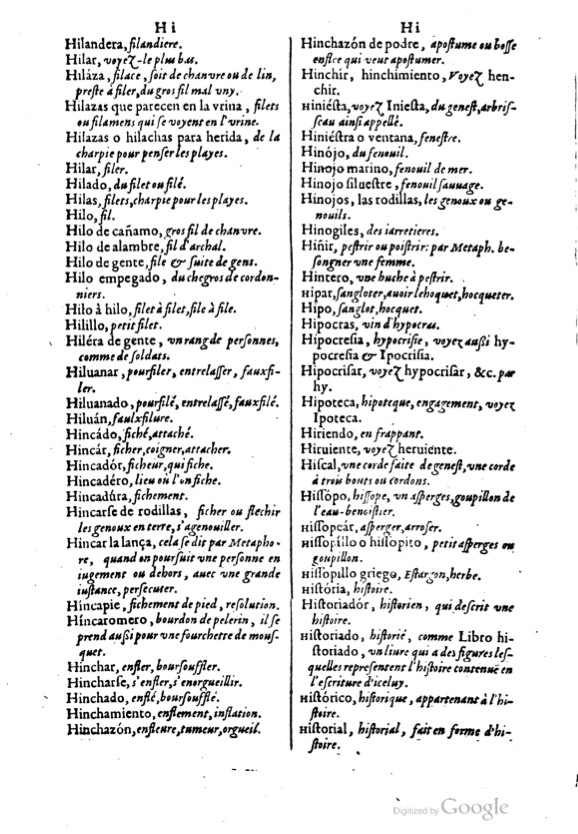 Hi
Hilandera, filandiere.
Hilar, voyez-le plus bas.
Hiláza, filace, soit de chanvre ou de lin,
preste à filer, du gros fil mal vny.
Hilazas que parecen en la vrina, filets
ou filamens qui se voyent en l'vrine.
Hilazas o hilachas para herida, de la
charpie pour penser les playes.
Hilar, filer.
Hilado, du filet ou filé.
Hilas, filets, charpie pour les playes.
Hilo, fil.
Hilo de cañamo, gros fil de chanvre.
Hilo de alambre, fil d'archal.
Hilo de gente, file & suite de gens.
Hilo empegado, du chegros de cordon-
niers.
Hilo à hilo, filet à filet, file à file.
Hilillo, petit filet.
Hiléra de gente, vn rang de personnes,
comme de soldats.
Hiluanar, pourfiler, entrelasser, fauxfi-
ler.
Hiluanado, pourfilé, entrelassé, fauxfilé.
Hiluán, faulxfilure.
Hincádo, fiché, attaché.
Hincár, ficher, coigner, attacher.
Hincadór, ficheur, qui fiche.
Hincadéro, lieu où l'on fiche.
Hincadúra, fichement.
Hincarse de rodillas, ficher ou flechir
les genoux en terre, s'agenouiller.
Hincar la lança, cela se dit par Metapho-
re, quand on poursuit vne personne en
iugement ou dehors, auec vne grande
instance, persecuter.
Hincapie, fichement de pied, resolution.
Híncaromero, bourdon de pelerin, il se
prend aussi pour vne fourchette de mous-
quet.
Hinchar, enfler, boursouffler.
Hincharse, s'enfler, s'enorgueillir.
Hinchado, enflé, boursoufflé.
Hinchamiento, enflement, inflation.
Hinchazón, enfleure, tumeur, orgueil.
Hi
Hinchazón de podre, apostume ou bosse
enflee qui veut apostumer.
Hinchír, hinchimiento, Voyez hen-
chir.
Hiniésta, voyez Iniesta, du genest, arbris-
seau ainsi appellé.
Hiniéstra o ventana, fenestre.
Hinójo, du fenouil.
Hinojo marino, fenouil de mer.
Hinojo siluestre, fenouil sauuage.
Hinojos, las rodillas, les genoux ou ge-
nouils.
Hinogiles, des iarretieres.
Hiñir, pestrir ou poistrir: par Metaph. be-
songner vne femme.
Hintero, vne huche à pestrir.
Hipar, sangloter, auoir le hoquet, hocqueter.
Hipo, sanglot, hocquet.
Hipocras, vin d'hypocras.
Hipocresia, hypocrisie, voyez aussi hy-
pocresia & Ipocrisia.
Hipocrisar, voyez hypocrisar, &c. par
hy.
Hipoteca, hipoteque, engagement, voyez
Ipoteca.
Hiriendo, en frappant.
Hiruiente, voyez heruiente.
Hiscal, vne corde faite de genest, vne corde
à trois bouts ou cordons.
Hissópo, hissope, vn asperges, goupillon de
l'eau-benoistier.
Hissopeár, asperger, arroser.
Hissopíllo o hissopito, petit asperges ou
goupillon.
Hissopillo griego, Estargon, herbe.
História, histoire.
Historiadór, historien, qui descrit vne
histoire.
Historiado, historié, comme Libro hi-
storiado, vn liure qui a des figures les-
quelles representent l'histoire contenuë en
l'escriture d'iceluy.
Histórico, historique, appartenant à l'hi-
stoire.
Historial, historial, fait en forme d'hi-
stoire.
Digitized by Google